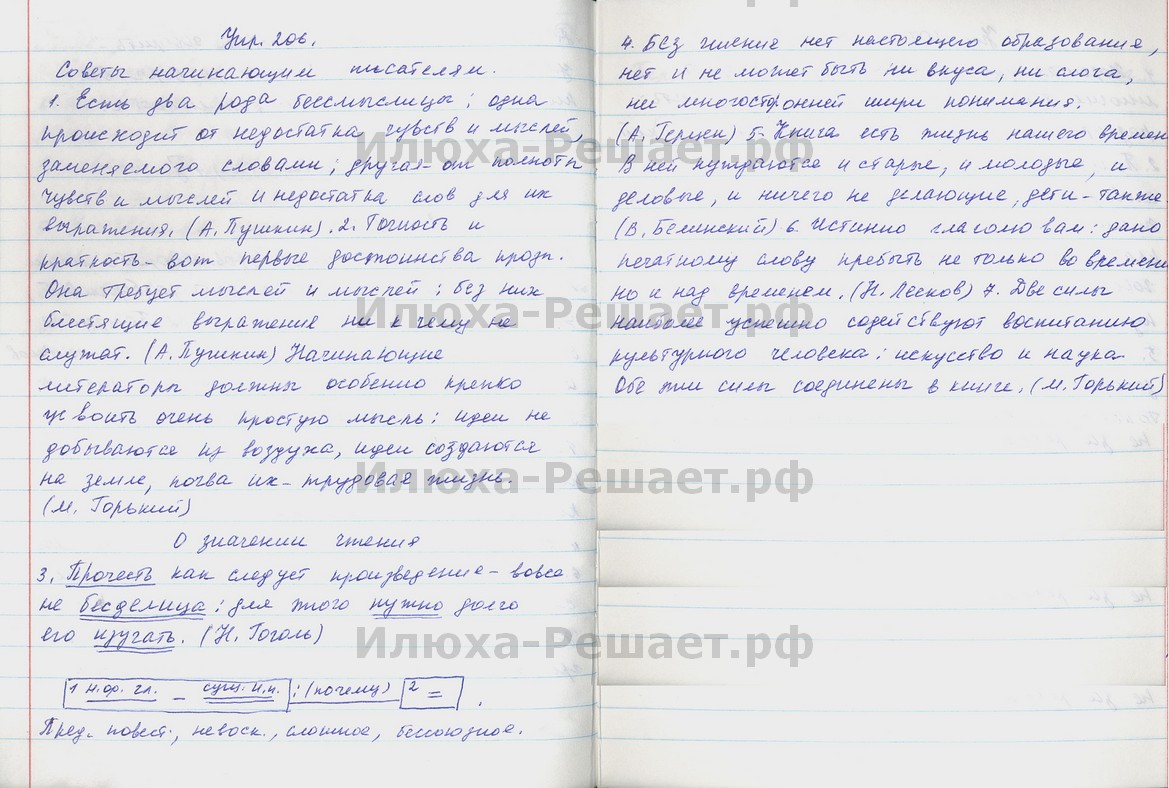 Упр. 206.
Советы начинающим писателям.
1. Есть два рода бессмыслицы: одна
происходит от недостатка чувств и мыслей,
заменяемого словами; другая - от полноты
чувств и мыслей и недостатка слов для их
выражения. (А. Пушкин). 2. Точность и
краткость - вот первые достоинства прозы.
Она требует мыслей и мыслей: без них
блестящие выражения ни к чему не
служат. (А. Пушкин) Начинающие
литераторы должны особенно крепко
усвоить очень простую мысль: идеи не
добываются из воздуха, идеи создаются
на земле, почва их - трудовая жизнь.
(М. Горький)
О значении чтения
3. Прочесть как следует произведение - вовсе
не безделица: для этого нужно долго
его изучать. (Н. Гоголь)
1 н.ф. гл. - сущ. И.п. : (почему) 2 = .
Пред. повест., невоск., сложное, бессоюзное.
4. Без чтения нет настоящего образования,
нет и не может быть ни вкуса, ни слога,
ни многосторонней шири понимания.
(А. Герцен) 5. Книга есть жизнь нашего времен
В ней нуждаются и старые, и молодые, и
деловые, и ничего не делающие, дети - также.
(В. Белинский) 6. Истинно глаголю вам: дано
печатному слову пребыть не только во времени
но и над временем. (Н. Лесков) 7. Две силы
наиболее успешно содействуют воспитанию
культурного человека: искусство и наука.
Обе эти силы соединены в книге. (М. Горький)
Илюха-Решает.рф
Илюха-Решает.рф
Илюха-Решает.рф
Илюха-Решает.рф